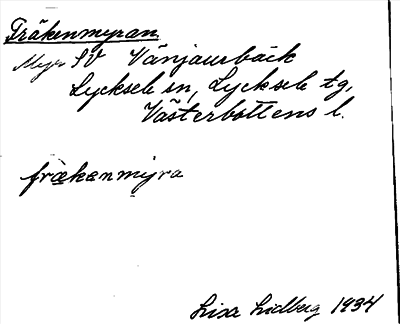 Fräkenmyran
Myr SV Vänjaurbäck
Lycksele sn, Lycksele tg,
Västerbottens l.
frækenmyra
Lisa Lidberg 1934